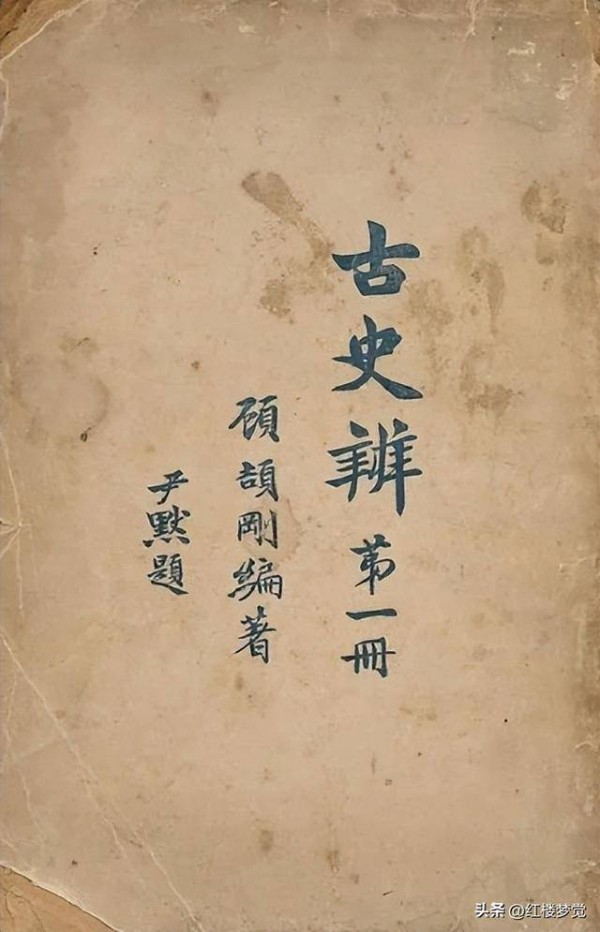 古史辨 第一冊
顧頡剛編著
尹默題
头条 @红楼梦觉